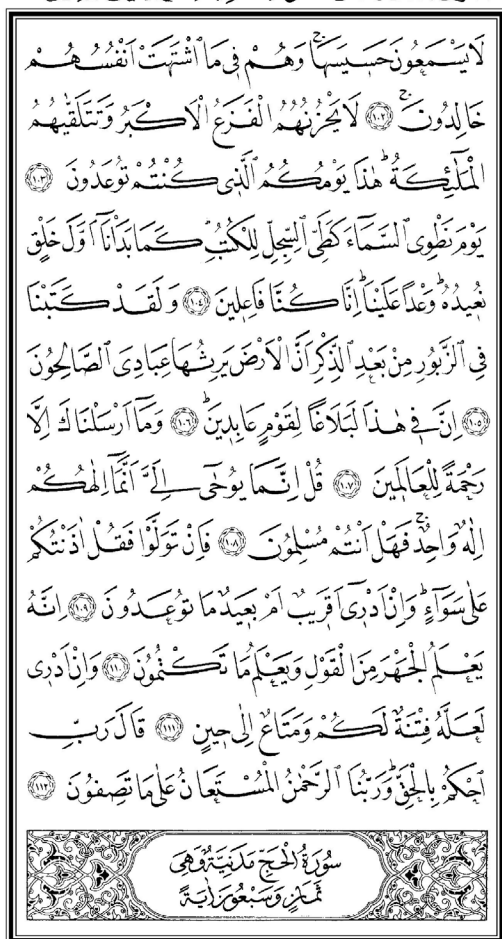 لَا يَسْمَعُونَ حَسِيسَهَاۚ وَهُمْ فِى مَا اشْتَهَتْ اَنْفُسُهُمْ
خَالِدُونَۚ ﴿١٠٢﴾ لَا يَحْزُنُهُمُ الْفَزَعُ الْاَكْبَرُ وَتَتَلَقّٰيهُمُ
الْمَلٰٓئِكَةُۜ هٰذَا يَوْمُكُمُ الَّذِى كُنْتُمْ تُوعَدُونَ ﴿١٠٣﴾
يَوْمَ نَطْوِى السَّمَٓاءَ كَطَىِّ السِّجِلِّ لِلْكُتُبِۜ كَمَا بَدَأْنَٓا اَوَّلَ خَلْقٍ
نُعِيدُهُۜ وَعْدًا عَلَيْنَاۜ اِنَّا كُنَّا فَاعِلِينَ ﴿١٠٤﴾ وَلَقَدْ كَتَبْنَا
فِى الزَّبُورِ مِنْ بَعْدِ الذِّكْرِ اَنَّ الْاَرْضَ يَرِثُهَا عِبَادِىَ الصَّالِحُونَ
﴿١٠٥﴾ اِنَّ فِى هٰذَا لَبَلَاغًا لِقَوْمٍ عَابِدِينَۜ ﴿١٠٦﴾ وَمَٓا اَرْسَلْنَاكَ اِلَّا
رَحْمَةً لِلْعَالَمِينَ ﴿١٠٧﴾ قُلْ اِنَّمَا يُوحٰٓى اِلَىَّ اَنَّمَٓا اِلٰهُكُمْ
اِلٰهٌ وَاحِدٌۚ فَهَلْ اَنْتُمْ مُسْلِمُونَ ﴿١٠٨﴾ فَاِنْ تَوَلَّوْا فَقُلْ اٰذَنْتُكُمْ
عَلٰى سَوَٓاءٍۜ وَاِنْ اَدْرِٓى اَقَرِيبٌ اَمْ بَعِيدٌ مَا تُوعَدُونَ ﴿١٠٩﴾ اِنَّهُ
يَعْلَمُ الْجَهْرَ مِنَ الْقَوْلِ وَيَعْلَمُ مَا تَكْتُمُونَ ﴿١١٠﴾ وَاِنْ اَدْرِى
لَعَلَّهُ فِتْنَةٌ لَكُمْ وَمَتَاعٌ اِلٰى حِينٍ ﴿١١١﴾ قَالَ رَبِّ
احْكُمْ بِالْحَقِّۜ وَرَبُّنَا الرَّحْمٰنُ الْمُسْتَعَانُ عَلٰى مَا تَصِفُونَ ﴿١١٢﴾
سُورَةُ الْحَجِّ مَدَنِيَّةٌ وَهِىَ
ثَمَانٍ وَسَبْعُونَ اٰيَةً